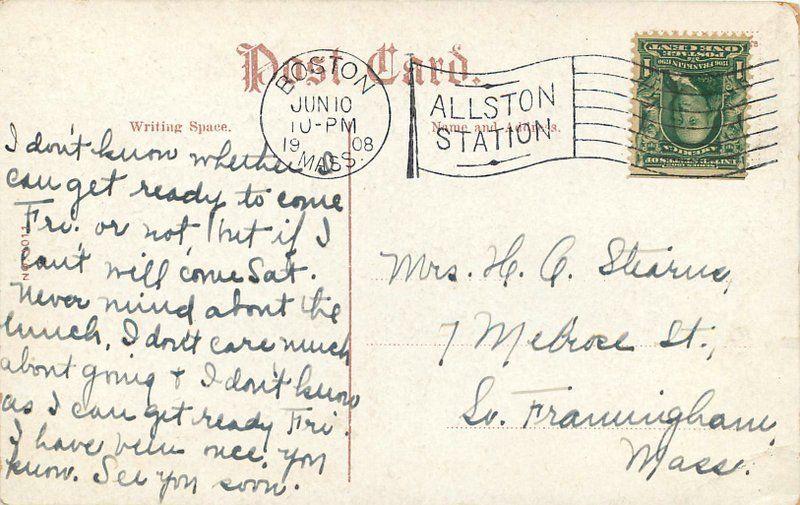 Post Card.
BOSTON
JUN 10
10-PM
1908
MASS.
ALLSTON
STATION
Writing Space.
Name and Address.
I don't know whether I
can get ready to come
Fri. or not, but if I
can't will come Sat.
Never mind about the
lunch, I don't care much
about going & I don't know
as I can get ready Fri.
I have been once, you
know. See you soon.
Mrs. H. A. Stearns,
7 Melrose St.,
So. Framingham,
Mass.
ONE CENT
POSTAGE
1706 FRANKLIN 1790